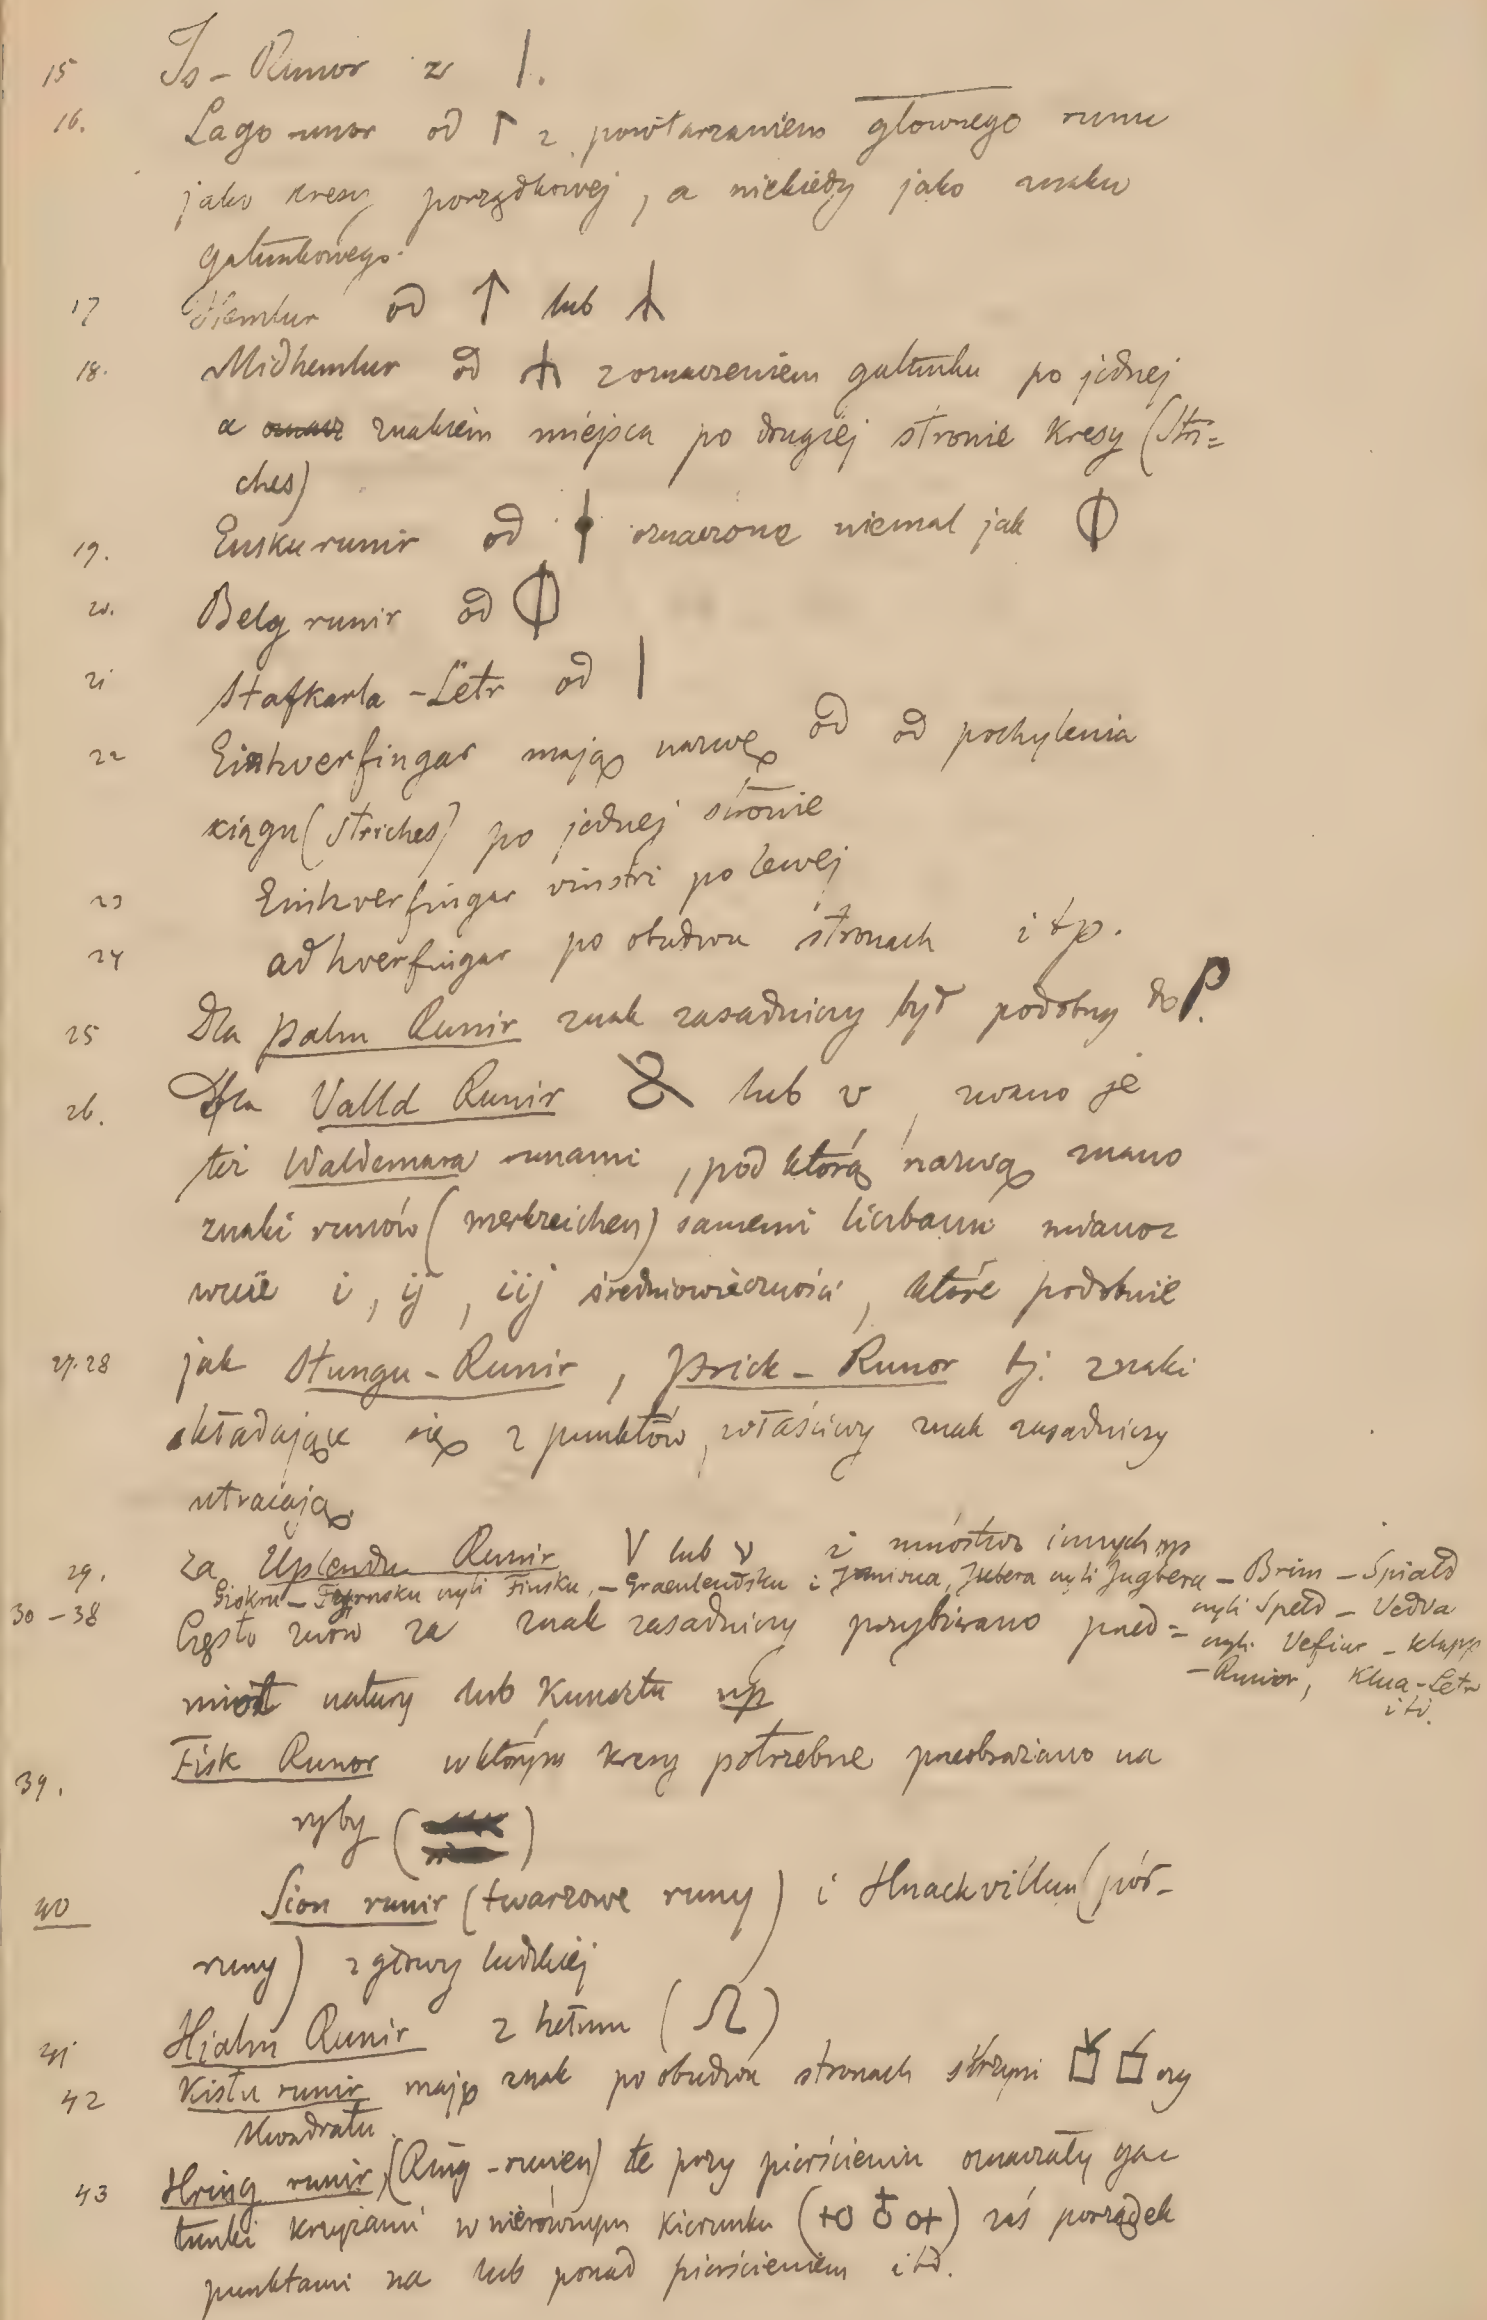 15 Is - Runor z |.
16. Lago-runor od ↾ z powtarzaniem głownego runu
jako kresy porządkowej, a niekiedy jako znaku
gatunkowego.
17 Hemlur od ↑ lub ⅄
18. Midhemlur od ⅄ z oznaczeniem gatunku po jednej
a znakiem miejsca po drugiej stronie kresy (Stri=
ches)
19. Ensku runir od ǂ oznaczone niemal jak Φ
20. Belg runir od Φ
21 Stafkarla - Letr od |
22 Einhverfingar mają nazwę od od pochylenia
xiągu (Striches) po jednej stronie
23 Einhverfingar vinstri po lewej
24 adhverfingar po obudwu stronach itp.
25 Dla Palm Runir znak zasadniczy był podobny do P.
26. Dla Valld Runir lub v, zwano je
też Waldemara runami, pod którą nazwą znano
znaki runów (merkzeichen) samemi liczbami mianoz
wicie i, ij, iij średniowieczności, które podobnie
27.28 jak Stungu - Runir, Prick - Runor tj. znaki
składające się z punktów, właściwy znak zasadniczy
utraciają.
29. za Uplendu Runir V lub v i mnóstwo innych np
Giokru - Fyrnsku czyli Finsku, - Graenlendsku i Jubera czyli Jugbera - Brim - Spiald
czyli Speld - Vedva
czyli Vefiur - Klapp
- Runor, Klua - Letr
itd.
30 - 38 Często znów za znak zasadniczy przybierano przed=
miot natury lub Kunsztu np
39. Fisk Runor w którym kresy potrzebne przeobrażano na
ryby ( )
40 Sion runir (twarzowe runy) i Hnackvillur (pół-
runy) z głowy ludzkiej
41 Hialm Runir z hełmu (Ω)
42 Kistu runir mają znak po obudwu stronach skrzyni czy
Kwadratu.
43 Hring runir, (Ring - runen) te przy pierścieniu oznaczały ga=
tunki krzyżami w nierównym kierunku (+o ♁ o+) zaś porządek
punktami na lub ponad pierścieniem itd.